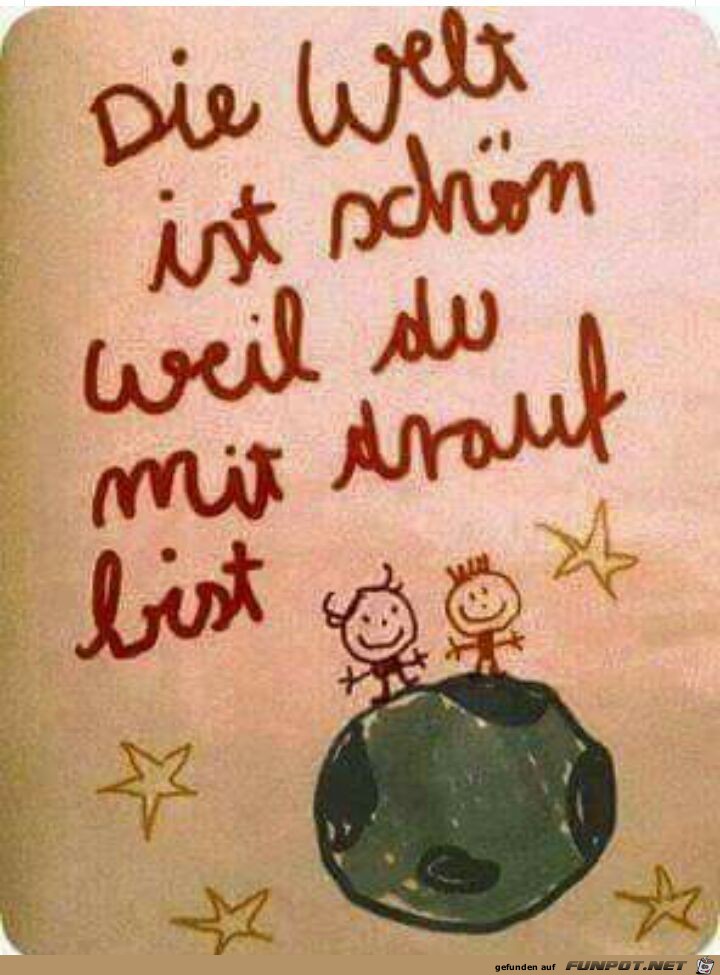 Die Welt
ist schön
weil du
mit drauf
bist
gefunden auf FUNPOT.NET